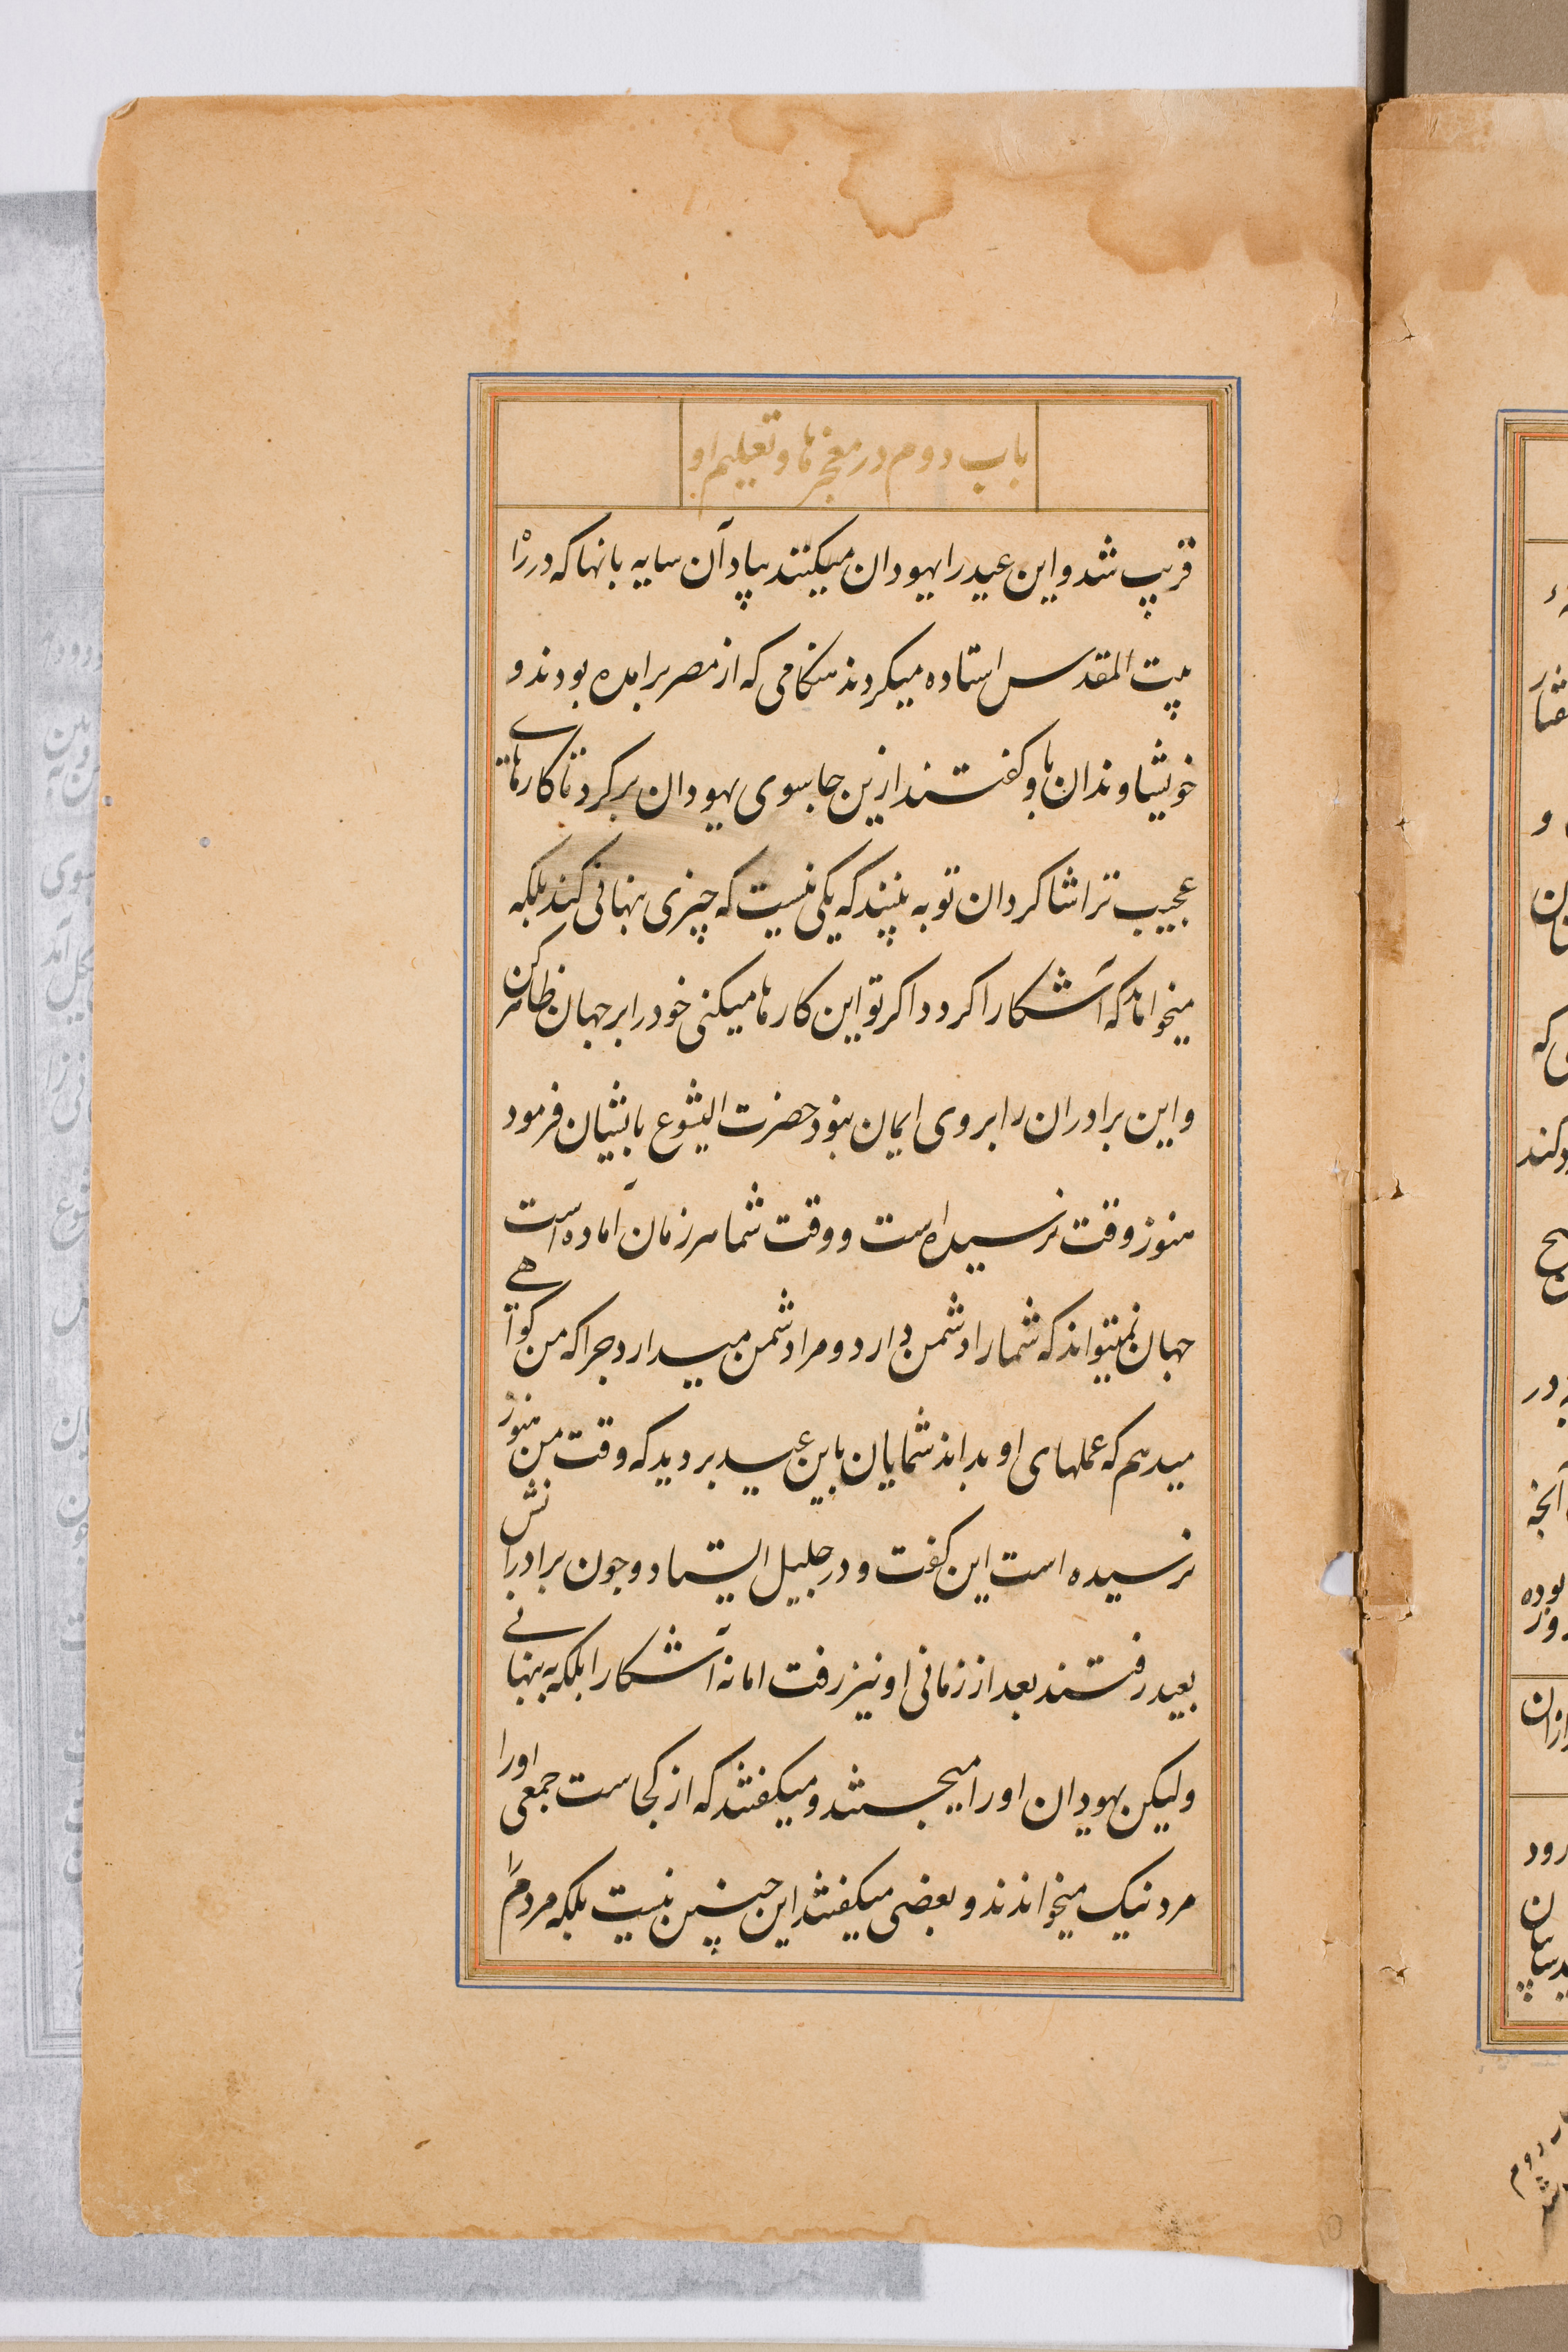 باب دوم در معجزها و تعلیم او
قریب شد و این عید را یهودان میکنند بیاد آن سایه بانها که در راه
بیت المقدس استاده میکردند هنکامی که از مصر برامده بودند و
خویشاوندان باو کفتند ازین جا بسوی یهودان برکرد تا کارهای
عجیب ترا شاکردان تو به بینند که یکی نیست که چیزی پنهانی کند بلکه
میخواهد که آشکارا کردد اکر تو این کارها میکنی خود را بر جهان ظاهر کن
و این برادران را بر وی ایمان نبود حضرت ایشوع بایشان فرمود
هنوز وقت نرسیده است و وقت شما هر زمان آماده است
جهان نمیتواند که شما را دشمن دارد و مرا دشمن میدارد جرا که من کواهی
میدهم که عملهای او بداند شمایان باین عید بروید که وقت من هنوز
نرسیده است این کفت و در جلیل ایستاد و جون برادرانش
بعید رفتند بعد از زمانی او نیز رفت اما نه آشکارا بلکه به پنهانی
ولیکن یهودان او را میجستند و میکفتند که از کجاست جمعی او را
مرد نیک میخواندند و بعضی میکفتند این جنین نیست بلکه مردم را